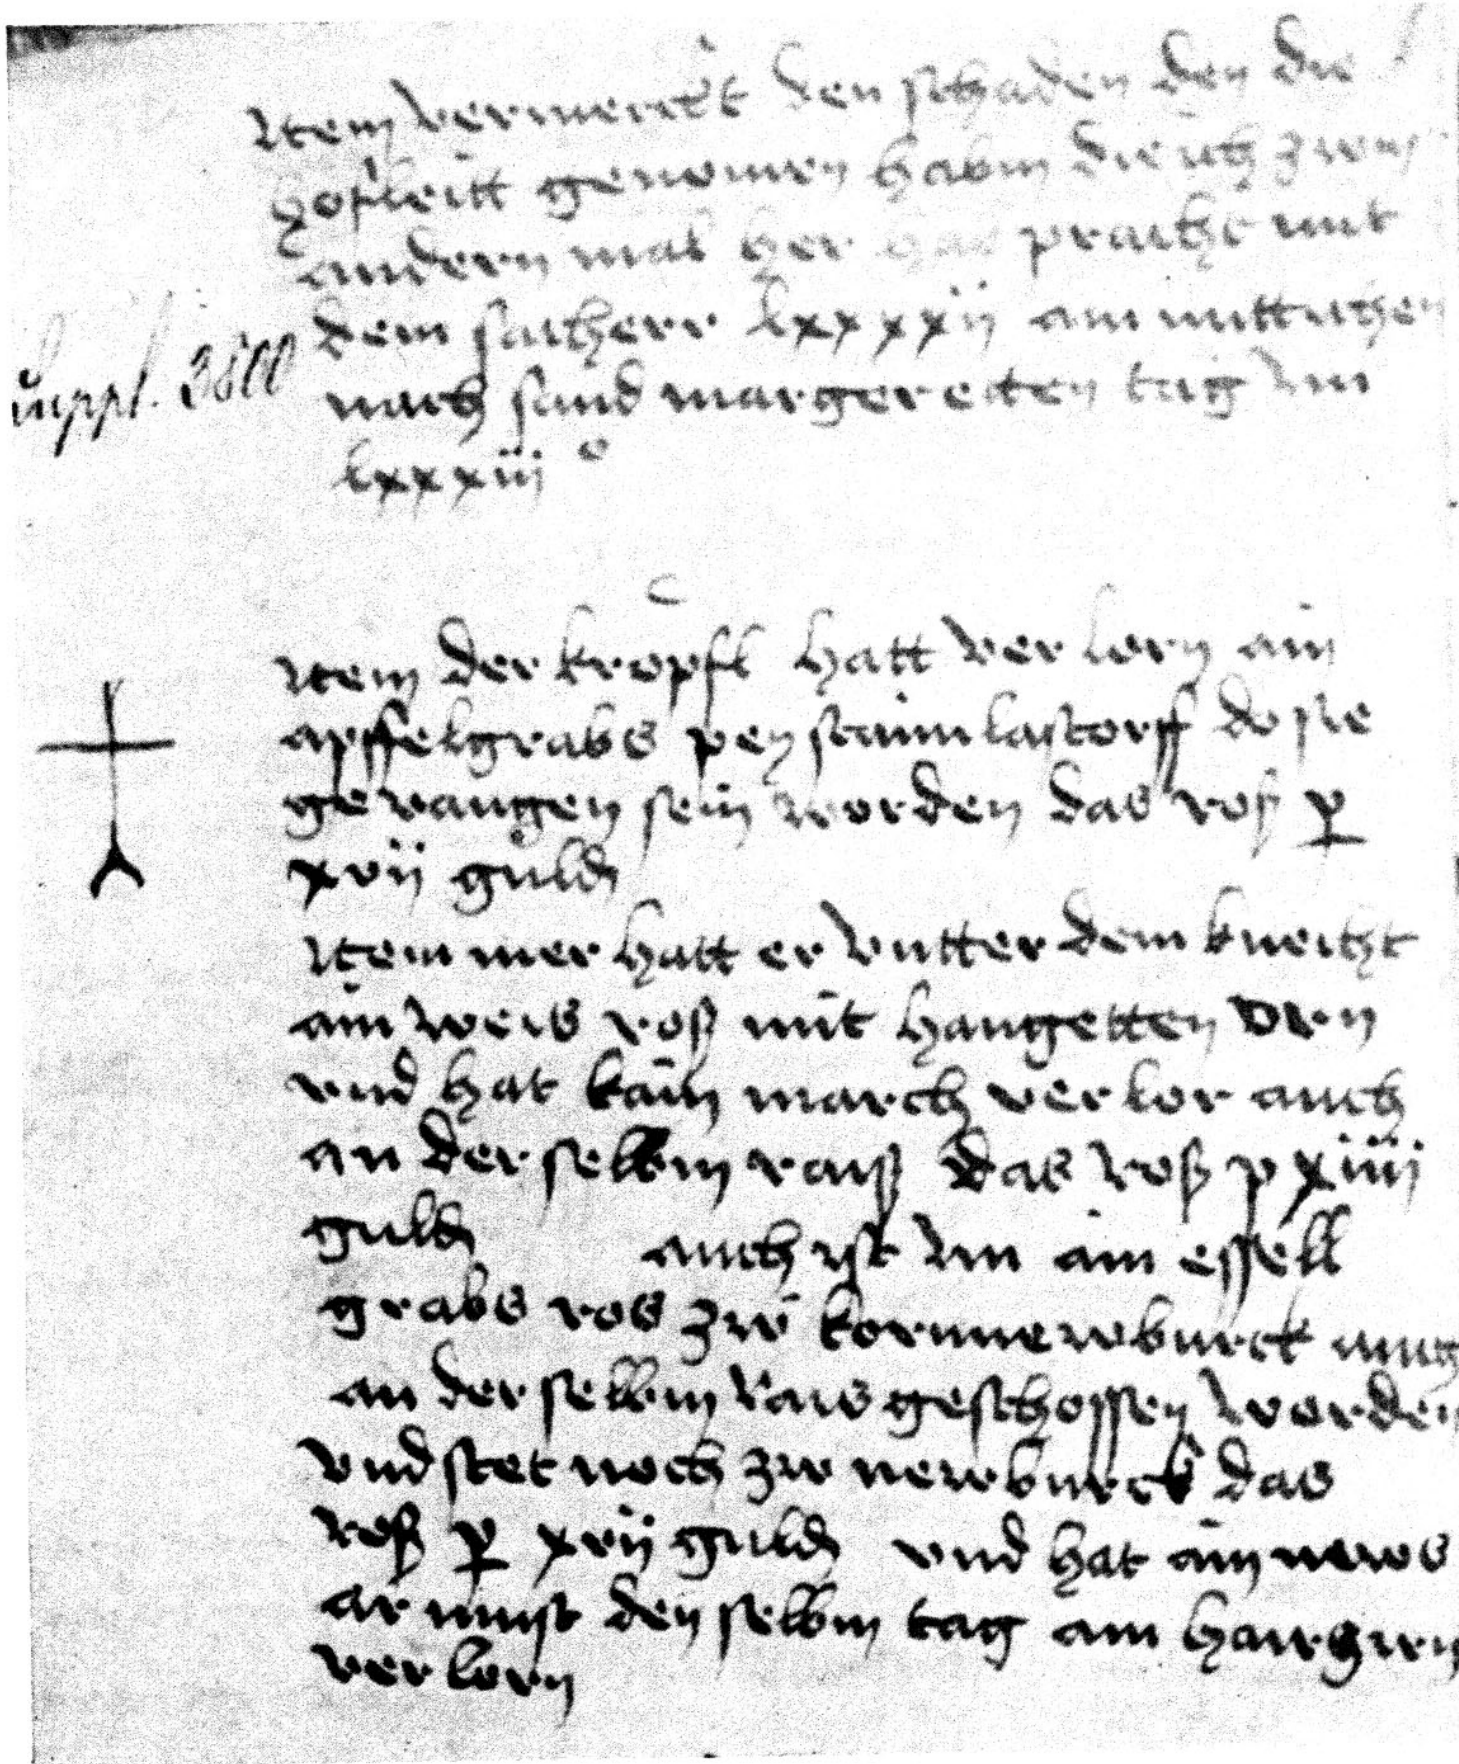 Item vermerckt den schaden den die
hofleitt genomen habm die ich zwm
andern mal her hab pracht mit
dem sacherr lxxxxii am mittichen
nach sand margeretten tag im
lxxxiii o
Suppl. 3800
Item der kropfl hatt verlorn ain
apffelgrabs pey staim lastorff do sie
gevangen sein worden das roß p
xvii guld
Item mer hatt er vntter dem knecht
ain weis roß mit hangetten orn
vnd hat kain march verlor auch
an der selbm raiß das roß p xiiii
guld auch ist im ain essell
grabs ros zw kornnewburck auch
an der selbm rais geschossen worden
vnd stet noch zw newburck das
roß p xvii guld vnd hat ain news
armust den selbm tag am
verlorn